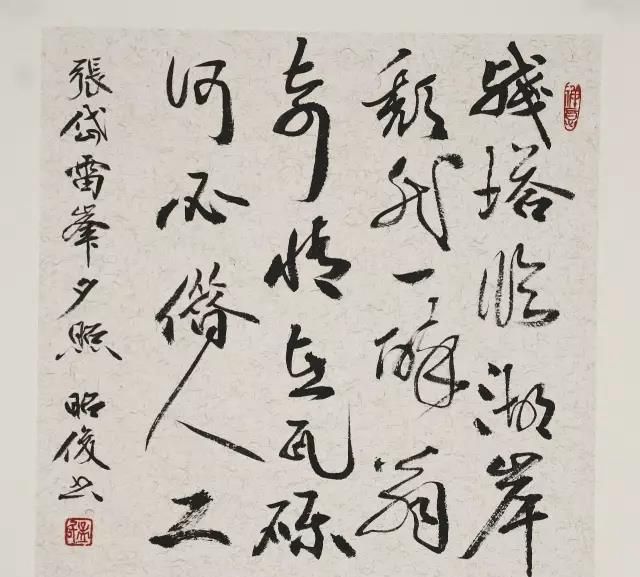 殘塔臨湖岸
頹然一醉翁
奇情在瓦礫
何必藉人工
張岱雷峯夕照 昭俊书